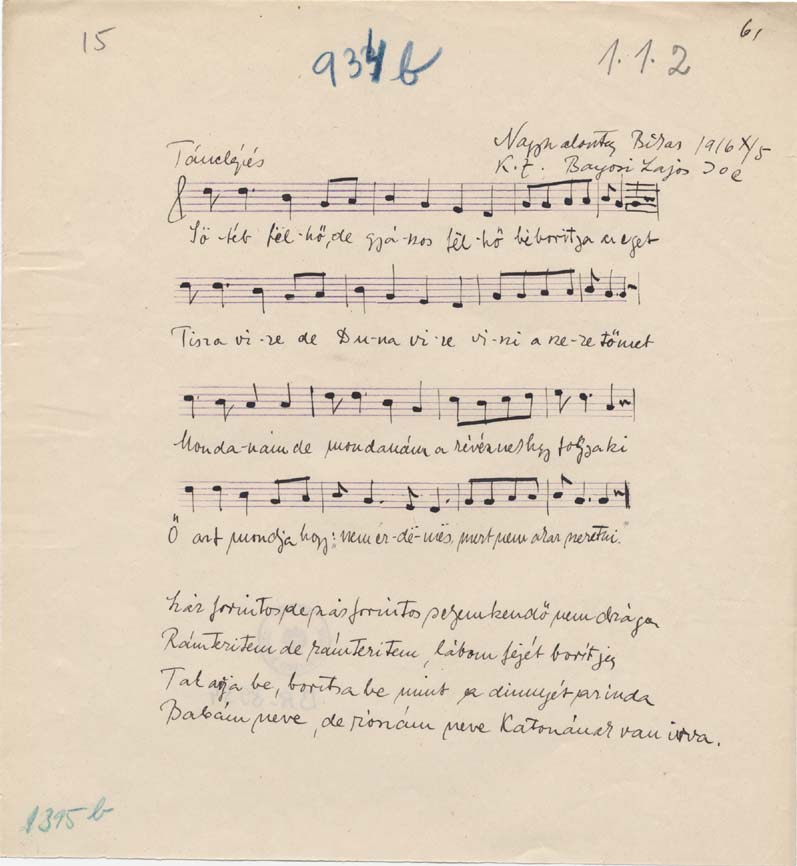 15
934 b
1.1.2
61
Nagyszalonta Bihar 1916 X/5
Tánclépés
K. Z. Bagosi Lajos
Sö-téb fël-hő, de gyá-szos fël-hő béborítja az eget
Tisza vi-ze de Du-na vi-ze vi-szi a ke-ze tömet
Monda-nám de mondanám a révésznek hogy fogja ki
Ő azt mondja hogy: "nem ér-dë-mës, mert nem akar szeretni."
Száz forintos de száz forintos selyemkendő nem drága
Rámterítem de rámterítem, lábom fejét borítja
Takarja be, borítsa be mint a dinnyét az inda
Babám neve, de rózsám neve Katonának van írva.
1395 b